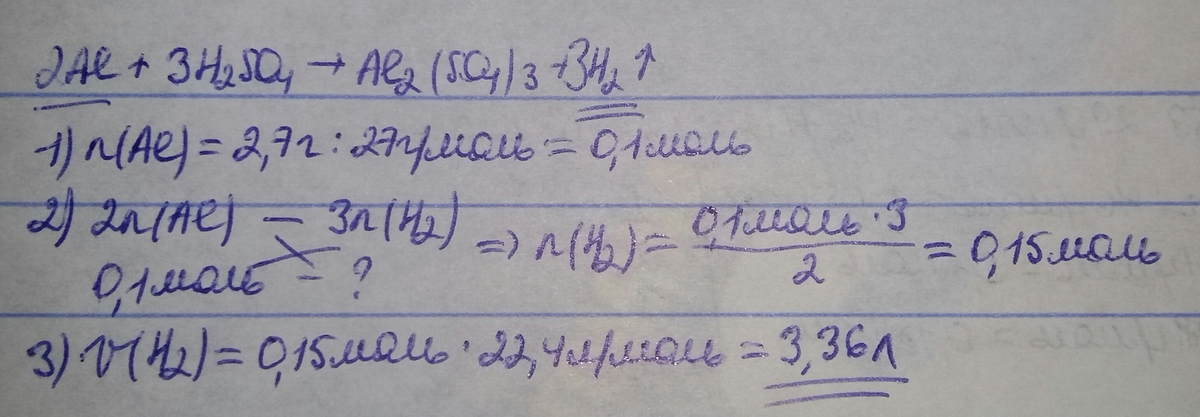 2Al + 3H₂SO₄ → Al₂(SO₄)₃ + 3H₂↑
1) n(Al) = 2,7г : 27г/моль = 0,1моль
2) 2n(Al) — 3n(H₂) => n(H₂) = 0,1моль · 3 / 2 = 0,15моль
0,1моль – ?
3) V(H₂) = 0,15моль · 22,4л/моль = 3,36л